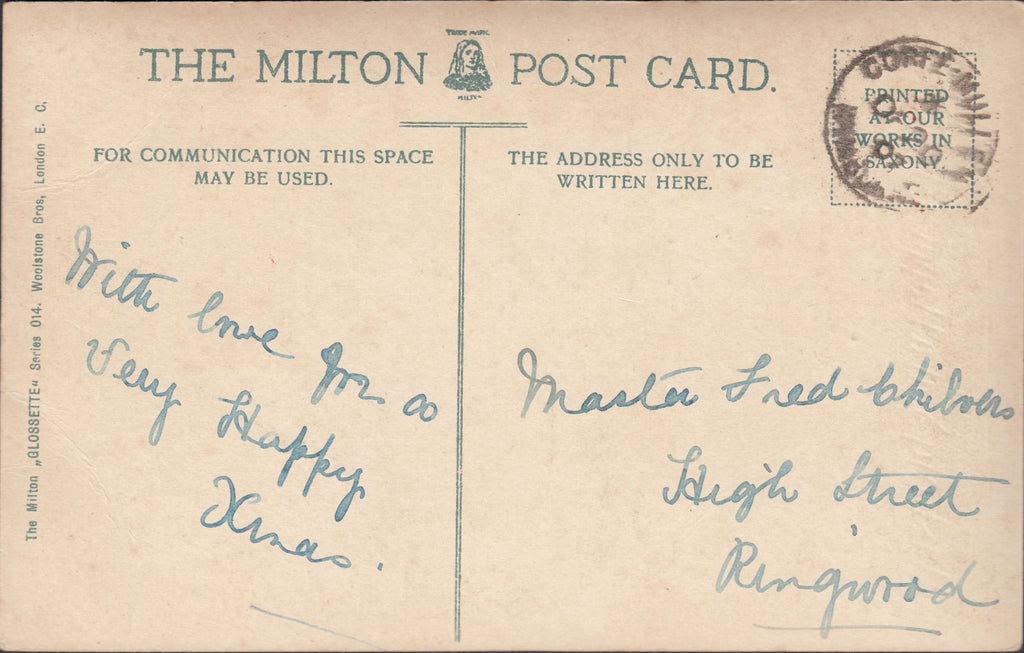 TRADE MARK
THE MILTON POST CARD.
MILTON
FOR COMMUNICATION THIS SPACE
MAY BE USED.
THE ADDRESS ONLY TO BE
WRITTEN HERE.
PRINTED
AT OUR
WORKS IN
SAXONY.
The Milton „GLOSSETTE“ Series 014. Woolstone Bros, London E. C,
With love for a
Very Happy
Xmas.
Master Fred Chilvers
High Street
Ringwood